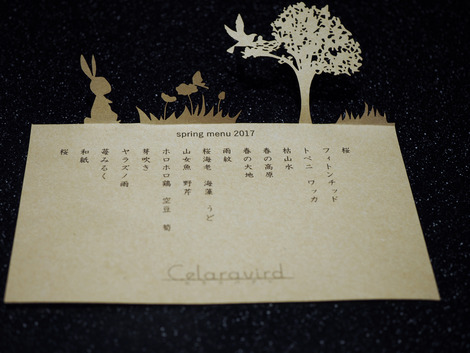 spring menu 2017
桜
フィトンチッド
トペニ ワッカ
枯山水
春の高原
春の大地
雨紋
桜海老 海藻 うど
山女魚 野芹
ホロホロ鶏 空豆 筍
芽吹き
ヤラズノ雨
苺みるく
和紙
桜
Celaravird